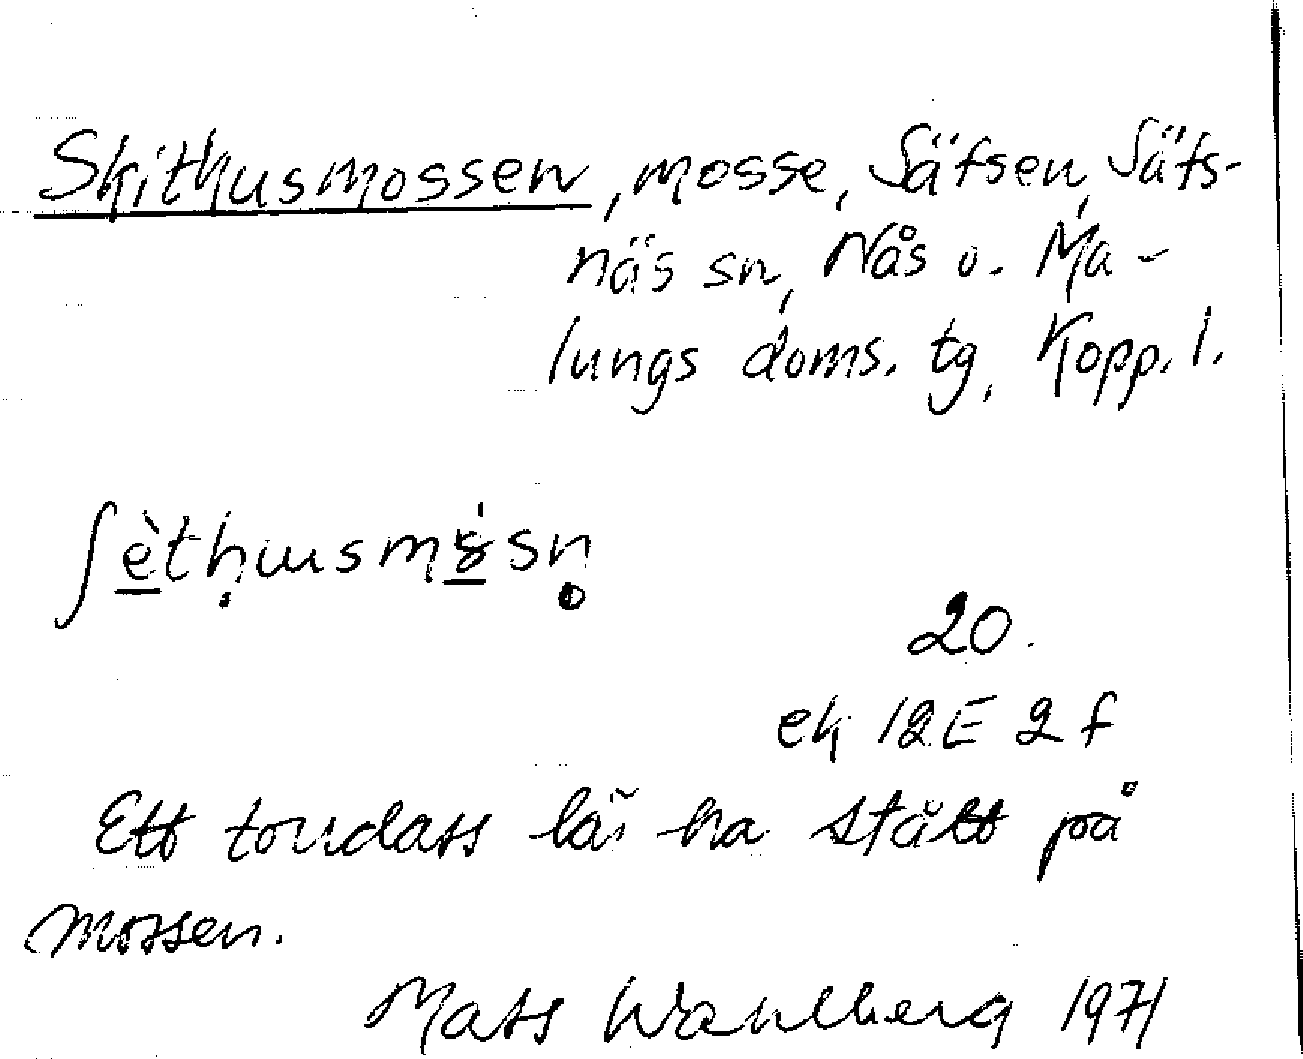 Skithusmossen, mosse, Säfsen, Säfs-
näs sn, Nås o. Ma-
lungs doms. tg, Kopp. l.
20.
ek 12E 2f
Ett torrdass lär ha stått på
mossen.
Mats Wahlberg 1971